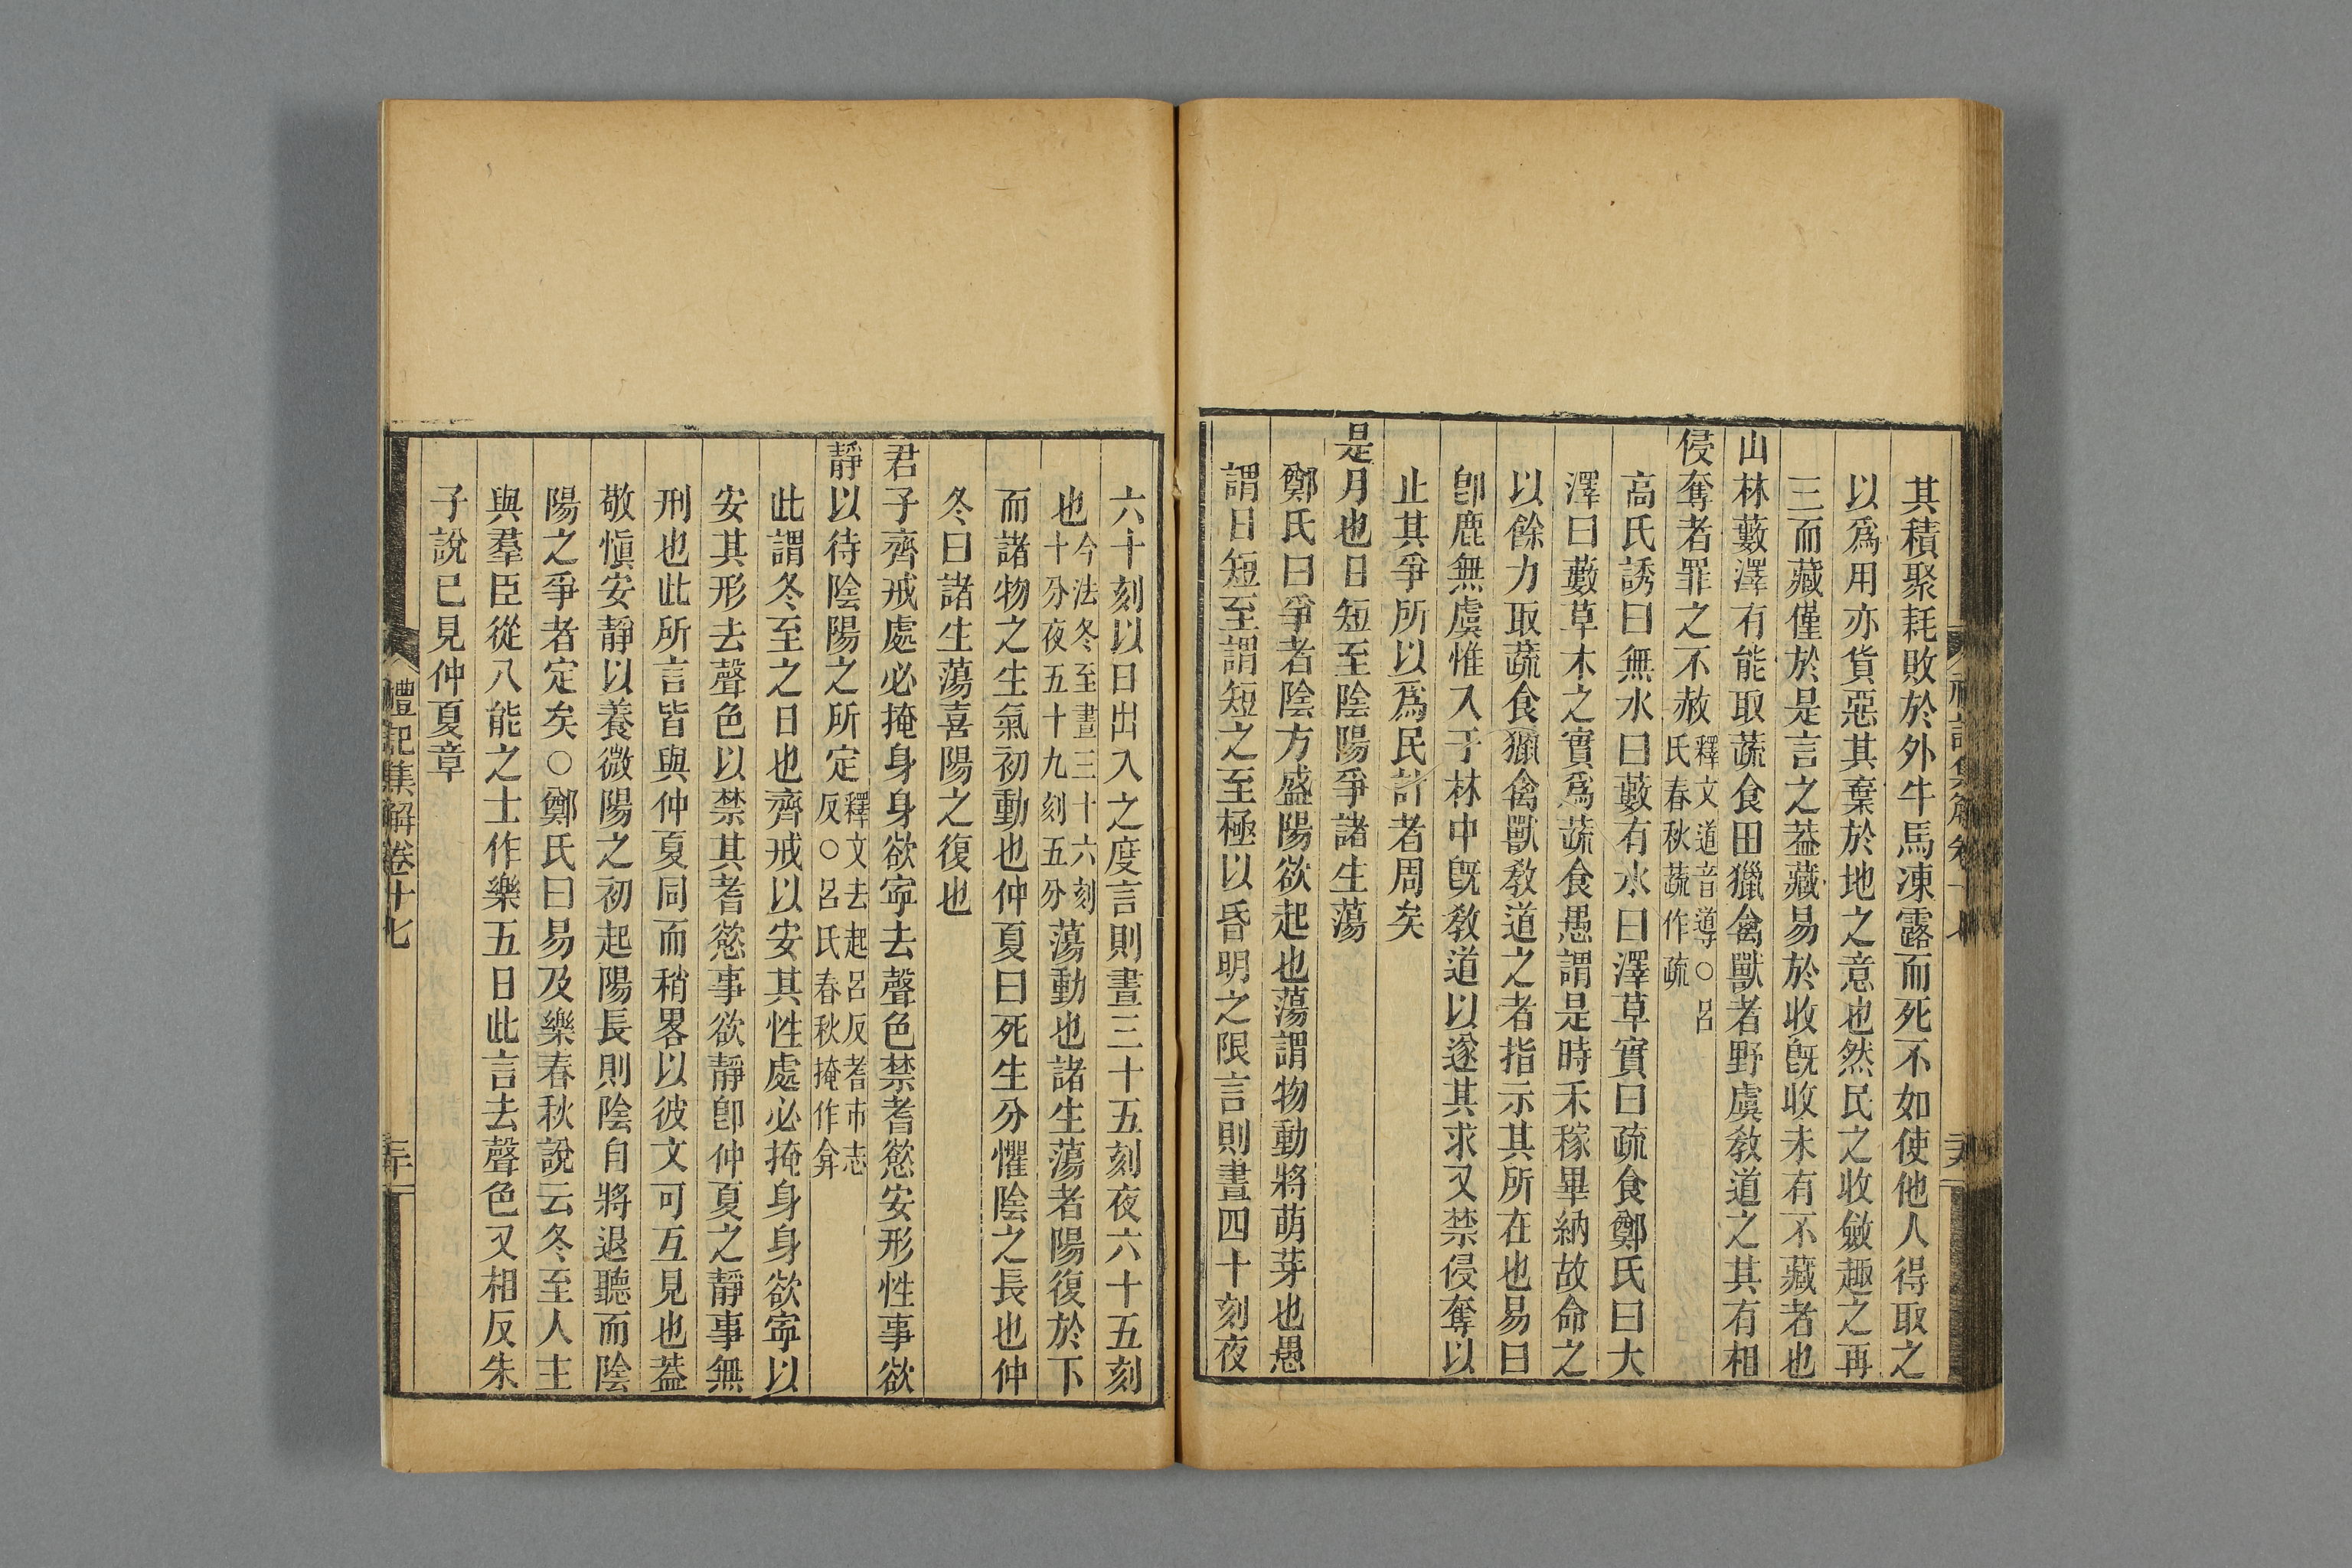 其積聚耗敗於外牛馬凍露而死不如使他人得取之
以爲用亦貨惡其棄於地之意也然民之收斂趣之再
三而藏僅於是言之葢藏易於收旣收未有不藏者也
山林藪澤有能取蔬食田獵禽獸者野虞敎道之其有相
侵奪者罪之不赦釋文道音導○呂氏春秋蔬作疏
高氏誘曰無水曰藪有水曰澤草實曰疏食鄭氏曰大
澤曰藪草木之實爲蔬食愚謂是時禾稼畢納故命之
以餘力取蔬食獵禽獸敎道之者指示其所在也易曰
卽鹿無虞惟入于林中旣敎道以遂其求又禁侵奪以
止其爭所以爲民計者周矣
是月也日短至陰陽爭諸生蕩
鄭氏曰爭者陰方盛陽欲起也蕩謂物動將萌芽也愚
謂日短至謂短之至極以昏明之限言則晝四十刻夜
六十刻以日出入之度言則晝三十五刻夜六十五刻
也今法冬至晝三十六刻十分夜五十九刻五分蕩動也諸生蕩者陽復於下
而諸物之生氣初動也仲夏曰死生分懼陰之長也仲
冬曰諸生蕩喜陽之復也
君子齊戒處必掩身身欲寧去聲色禁耆慾安形性事欲
靜以待陰陽之所定釋文去起呂反耆市志反○呂氏春秋掩作弇
此謂冬至之日也齊戒以安其性處必掩身身欲寧以
安其形去聲色以禁其耆慾事欲靜卽仲夏之靜事無
刑也此所言皆與仲夏同而稍畧以彼文可互見也葢
敬愼安靜以養微陽之初起陽長則陰自將退聽而陰
陽之爭者定矣○鄭氏曰易及樂春秋說云冬至人主
與羣臣從八能之士作樂五日此言去聲色又相反朱
子說已見仲夏章
禮記集解卷十七
三十